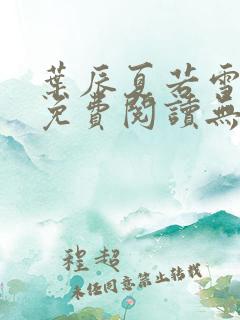 葉辰夏若雪
免費閱讀無
程超
未经同意禁止转载